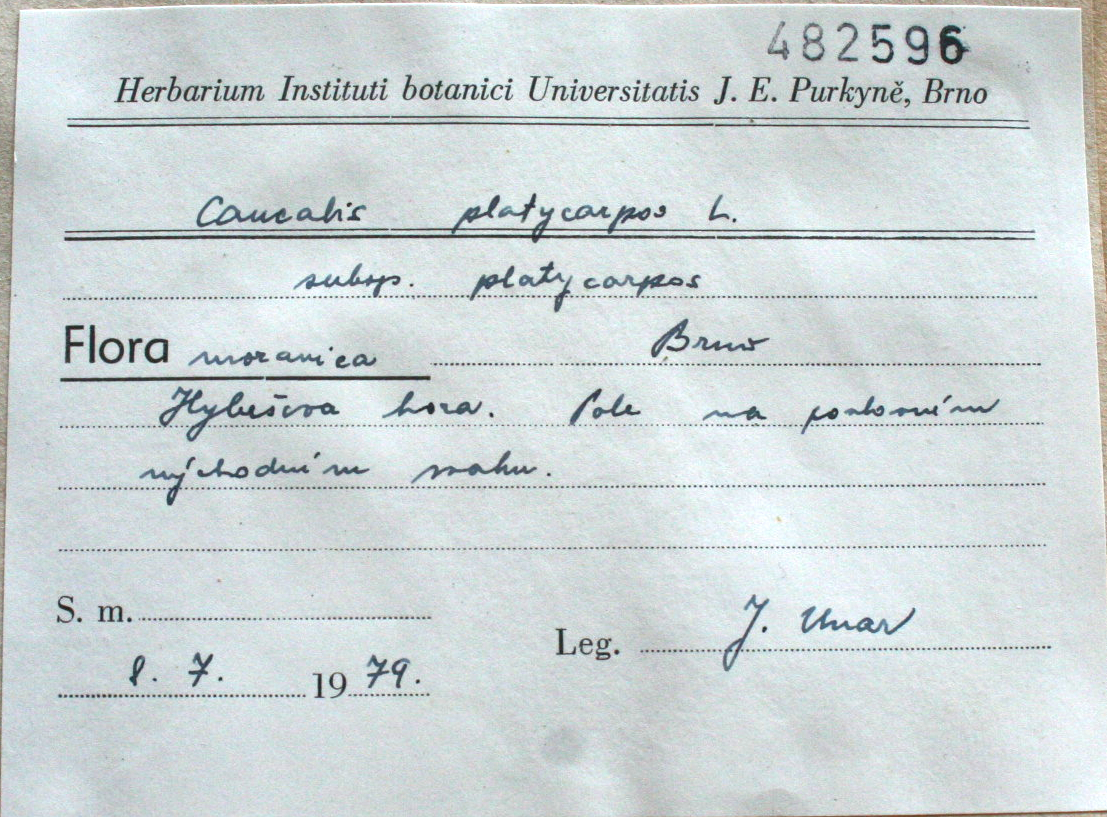 482596
Herbarium Instituti botanici Universitatis J. E. Purkyně, Brno
Caucalis platycarpos L.
subsp. platycarpos
Flora moravica Brno
Hybešova hora. Pole na
východním svahu.
S. m.
Leg. J. Unar
8. 7. 1979.